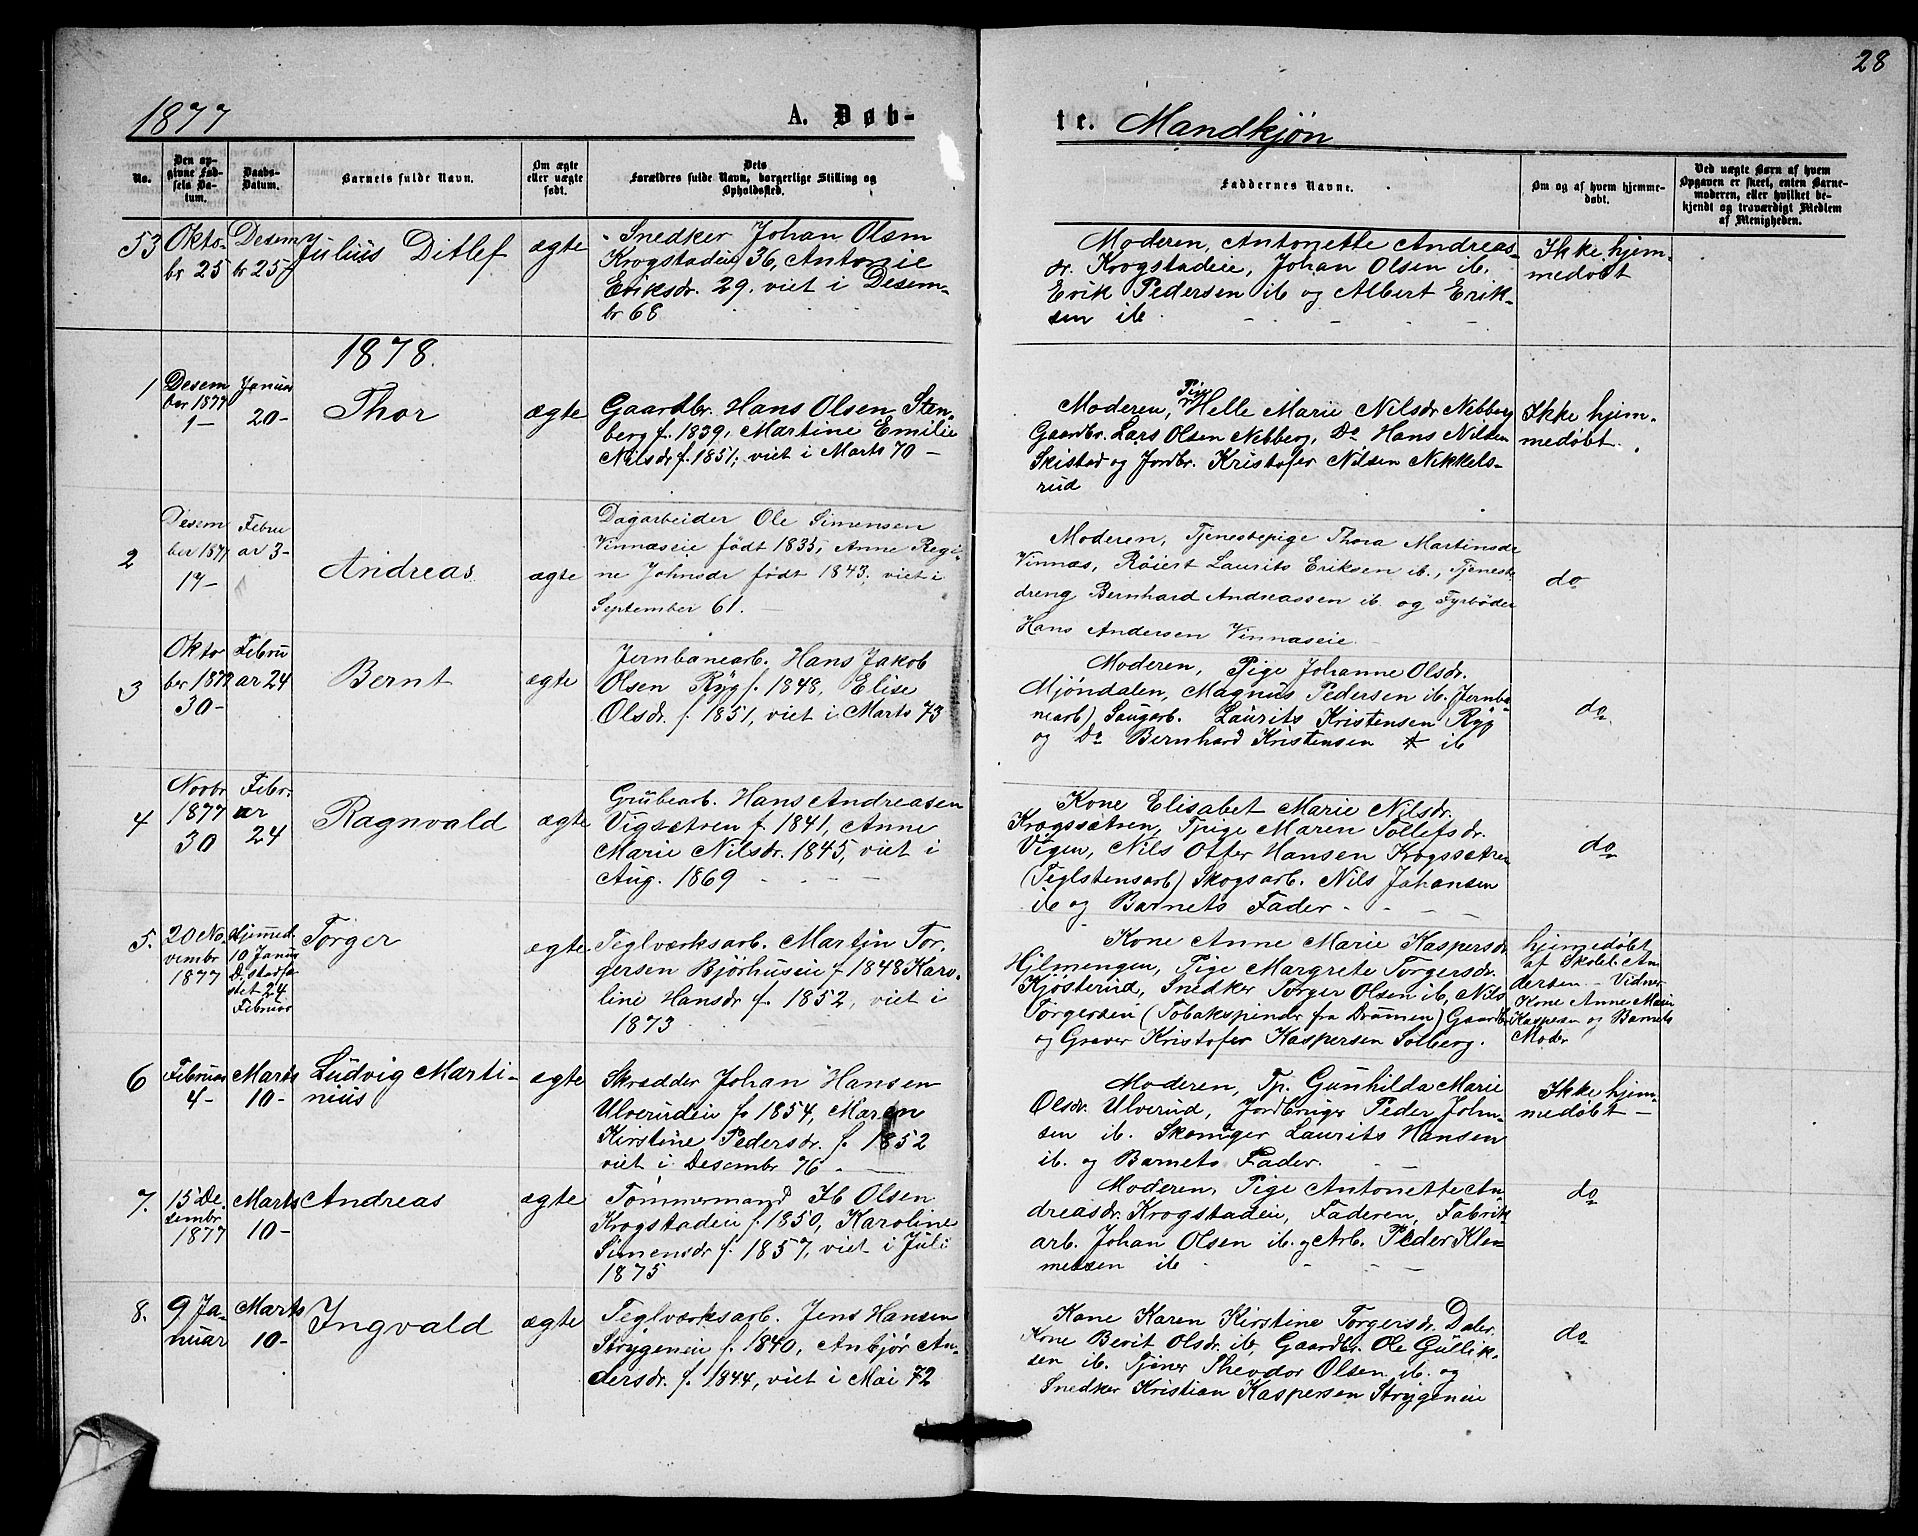 28
1877 A. Døb-
te. Mandkjøn
No.
Den op-
givne Fød-
sels Da-
tum.
Daabs-
Datum.
Barnets fulde Navn.
Om ægte
eller uægte
født.
Dets
Forældres fulde Navn, borgerlige Stilling og
Opholdssted.
Faddernes Navne.
Om og af hvem hjemme-
døbt.
Ved uægte Børn af hvem
Opgaven er skeet, enten Barne-
moderen, eller hvilket be-
kjendt og troværdigt Medlem
af Menigheden.
53
Okto-
br 25
Desem
br 25
Julius Ditlef
ægte
Snedker Johan Olsen
Krogstadeie 36, Antonie
Eriksdr. 29. viet i Desem-
br 68
Moderen, Antonette Andreas-
dr. Krogstadeie, Johan Olsen ib.
Erik Pedersen ib og Albert Erik-
sen ib
Ikke hjem-
medøbt
1878.
1
Desem
ber 1877
1-
Januar
20-
Thor
ægte
Gaardbr. Hans Olsen Sten-
berg f. 1839, Martine Emilie
Nilsdr f. 1851; viet i Marts 70 -
Moderen, Pige Helle Marie Nilsdr Nebberg
Gaardbr. Lars Olsen Nebberg, Do Hans Nilsen
Skistad og Jordbr. Kristofer Nilsen Nikkels-
rud
Ikke hjem-
medøbt.
2
Desem
ber 1877
17-
Febru
ar 3-
Andreas
ægte
Dagarbeider Ole Simensen
Vinnæseie født 1835, Anne Regi-
ne Johnsdr født 1843. viet i
September 61. -
Moderen, Tjenestepige Thora Martinsdr
Vinnæs, Røiert Laurits Eriksen ib., Tjeneste
dreng Bernhard Andreassen ib. og Fyrbøder
Hans Andersen Vinnæseie
do
3
Okto
ber 1877
30-
Febru
ar 24
Bernt
ægte
Jernbanearb. Hans Jakob
Olsen Ryg f. 1848, Elise
Olsdr. f. 1851, viet i Marts 73
Moderen, Pige Johanne Olsdr.
Mjøndalen, Magnus Pedersen ib. (Jernba-
nearb) Saugarb. Laurits Kristensen Ryg
og Do Bernhard Kristensen ib
do
4
Novbr
1877
30
Febr.
ar
24
Ragnvald
ægte
Grubearb. Hans Andreasen
Vigsætren f. 1841, Anne
Marie Nilsdr. 1845, viet i
Aug. 1869
Kone Elisabet Marie Nilsdr.
Krogssætren, Tpige Maren Tollefsdr.
Vigen, Nils Otter Hansen Krogssætren
(Teglstensarb) Skogsarb. Nils Johansen
ib og Barnets Fader -
do
5.
20 No-
vembr
1877
Hjemmed.
10 Januar
D. stadfæ
stet 24
Februar
Torger
ægte
Teglværksarb. Martin Tor-
gersen Bjørhuseie f. 1848 Karo-
line Hansdr f. 1852, viet i
1873
Kone Anne Marie Kaspersdr
Hjlmengen, Pige Margrete Torgersdr.
Kjøsterud, Snedker Torger Olsen ib, Nils
Torgersen (Tobakspinder fra Drammen) Gaardbr
og Graver Kristofer Kaspersen Solberg.
hjemmedøbt
af Skolel. An-
dersen - Vidner
Kone Anne Marie
Kaspersen og Barnets
Moder
6
Februar
4-
Marts
10-
Ludvig Marti-
nius
ægte
Skrædder Johan Hansen
Ulverudeie f. 1854, Maren
Kirstine Pedersdr. f. 1852
viet i Desembr 76 -
Moderen, Tp. Gunhilda Marie
Olsdr. Ulverud, Jordbruger Peder John-
sen ib. Skomager Laurits Hansen
ib. og Barnets Fader.
Ikke hjem-
medøbt -
7.
15 De-
sembr
1877
Marts
10-
Andreas
ægte
Tømmermand Ib Olsen
Krogstadeie f. 1850, Karoline
Simensdr f. 1857, viet i Juli
1875
Moderen, Pige Antonette An-
dreasdr. Krogstadeie, Faderen, Fabrik-
arb. Johan Olsen ib. og Arb. Peder Kle-
metsen ib
do
8.
9 Ja-
nuar
Marts
10-
Ingvald
ægte
Teglværksarb. Jens Hansen
Strygeneie f. 1840, Anbjør An-
dersdr. f. 1844, viet i Mai 72
Kone Karen Kirstine Torgersdr. Daler.
Kone Berit Olsdr. ib, Gaardbr. Ole Gullik-
sen ib. Tjener Theodor Olsen ib. og
Snedker Kristian Kaspersen Strygeneie
do